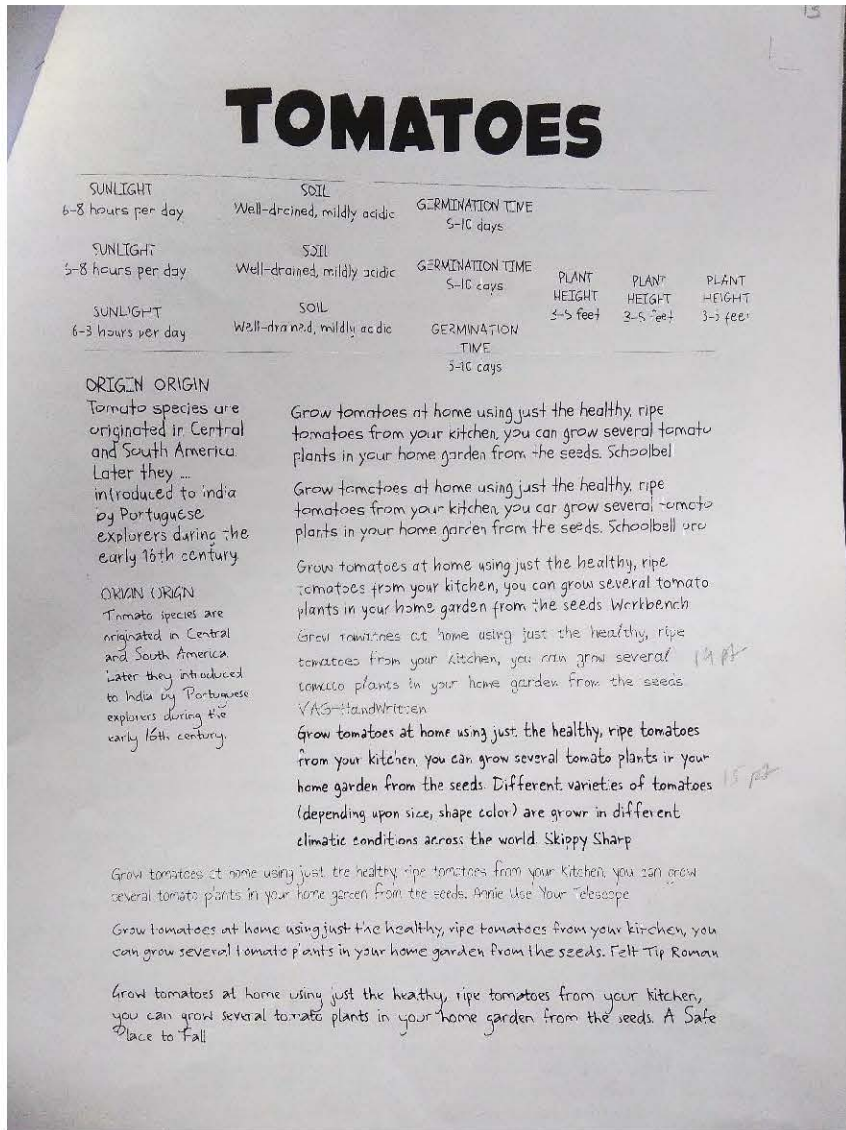 13
TOMATOES
SUNLIGHT
6-8 hours per day
SOIL
Well-drained, mildly acidic
GERMINATION TIME
5-10 days
SUNLIGHT
6-8 hours per day
SOIL
Well-drained, mildly acidic
GERMINATION TIME
5-10 days
PLANT
HEIGHT
3-5 feet
PLANT
HEIGHT
3-5 feet
PLANT
HEIGHT
3-5 feet
SUNLIGHT
6-8 hours per day
SOIL
Well-drained, mildly acidic
GERMINATION
TIME
5-10 days
ORIGIN ORIGIN
Tomato species are
originated in Central
and South America
Later they ...
introduced to india
by Portuguese
explorers during the
early 16th century
ORIGIN ORIGN
Tomato species are
originated in Central
and South America
Later they introduced
to India by Portuguese
explorers during the
early 16th century.
Grow tomatoes at home using just the healthy, ripe
tomatoes from your kitchen, you can grow several tomato
plants in your home garden from the seeds. Schoolbel
Grow tomatoes at home using just the healthy, ripe
tomatoes from your kitchen, you can grow several tomato
plants in your home garden from the seeds. Schoolbell pro
Grow tomatoes at home using just the healthy, ripe
tomatoes from your kitchen, you can grow several tomato
plants in your home garden from the seeds Workbench
Grow tomatoes at home using just the healthy, ripe
tomatoes from your kitchen, you can grow several
tomato plants in your home garden from the seeds
VAG-HandWritten
14 pt
Grow tomatoes at home using just, the healthy, ripe tomatoes
from your kitchen, you can grow several tomato plants in your
home garden from the seeds. Different, varieties of tomatoes
(depending upon size, shape color) are grown in different
climatic conditions across the world. Skippy Sharp
15 pt
Grow tomatoes at home using just the healthy, ripe tomatoes from your kitchen, you can grow
several tomato plants in your home garden from the seeds. Annie Use Your Telescope
Grow tomatoes at home using just the healthy, ripe tomatoes from your kitchen, you
can grow several tomato plants in your home garden from the seeds. Felt Tip Roman
Grow tomatoes at home using just the heathy, ripe tomatoes from your kitchen,
you can grow several tomato plants in your home garden from the seeds. A Safe
Place to Fall